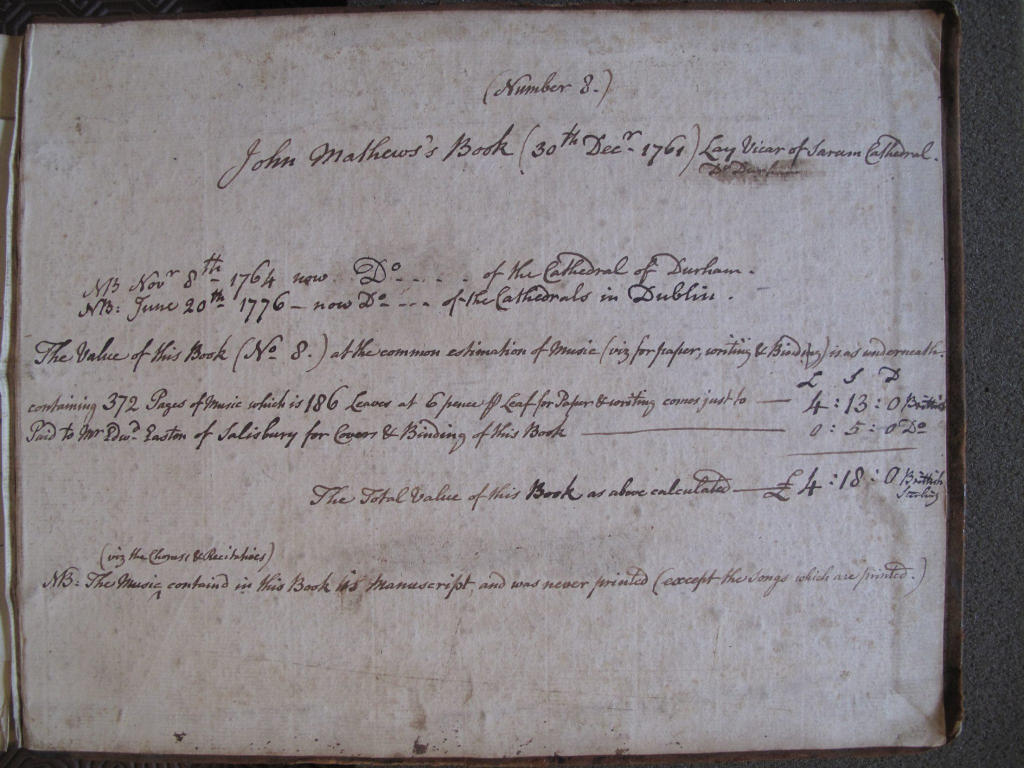 (Number 8.)
John Mathews's Book (30th Decr. 1761) Lay Vicar of Sarum Cathedral.
Do
NB Novr 8th 1764 now Do - - - - of the Cathedral of Durham.
NB: June 20th 1776 — now Do - - - of the Cathedrals in Dublin.
The Value of this Book (No 8.) at the common estimation of Music (viz for paper, writing & Binding) is as underneath.
L S D
containing 372 Pages of Music which is 186 Leaves at 6 pence Leaf for Paper & writing comes just to — 4 : 13 : 0 Brittish
Paid to Mr Edwd. Easton of Salisbury for Covers & Binding of this Book — 0 : 5 : 0 Do
The Total Value of this Book as above calculated — £ 4 : 18 : 0 Brittish
Sterling
(viz the Choruses & Recitatives)
NB: The Music containd in this Book is Manuscript, and was never printed (except the Songs which are printed.)